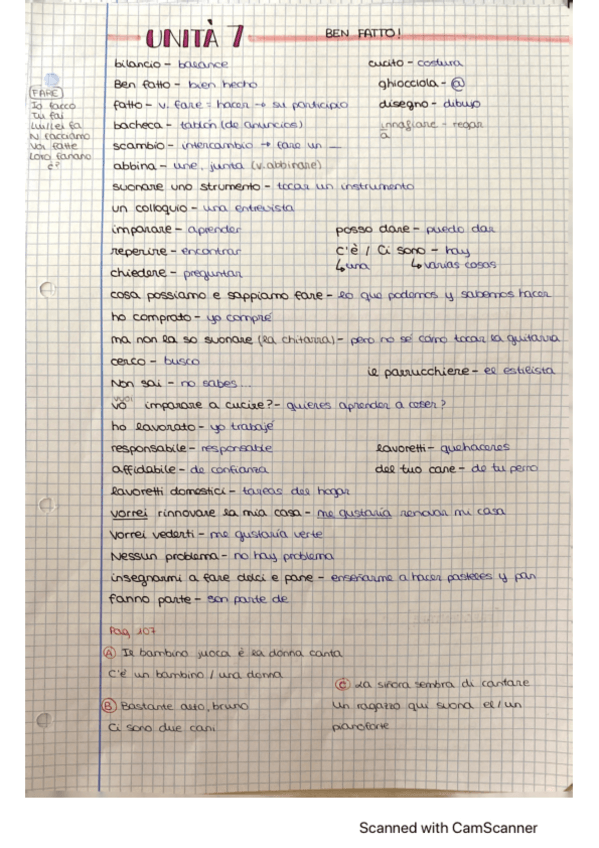 UNITÀ 7
BEN FATTO!
bilancio - balance
cucito - costura
Ben fatto - bien hecho
ghiocciola - @
FARE
Io faccio
Tu fai
Lui/Lei fa
Ni facciamo
Voi fatte
Loro fanano
fatto - v. fare = hacer → su participio
disegno - dibujo
bacheca - tablón (de anuncios)
innafiare - regar
a
scambio - intercambio → fare un _
abbina - une, junta (v. abbinare)
suonare uno strumento - tocar un instrumento
un colloquio - una entrevista
imparare - aprender
posso dare - puedo dar
reperire - encontrar
c'è / Ci sono - hay
↳ una ↳ varias cosas
chiedere - preguntar
cosa possiamo e sappiamo fare - lo que podemos y sabemos hacer
ho comprato - yo compré
ma non la so suonare (la chitarra) - pero no sé como tocar la guitarra
cerco - busco
le parrucchiere - el estilista
Non sai - no sabes...
vuoi
vò imparare a cucire? - quieres aprender a coser?
ho lavorato - yo trabajé
responsabile - responsable
lavoretti - quehaceres
affidabile - de confianza
del tuo cane - de tu perro
lavoretti domestici - tareas del hogar
vorrei rinnovare la mia casa - me gustaría renovar mi casa
vorrei vederti - me gustaría verte
Nessun problema - no hay problema
insegnarmi a fare dolci e pane - enseñarme a hacer pasteles y pan
fanno parte - son parte de
Pag 107
A Il bambino juoca è la donna canta
C'è un bambino / una donna
C La siñora sembra di cantare
B Bastante alto, bruno
Un ragazzo qui suona el/un
Ci sono due cani
pianoforte
Scanned with CamScanner